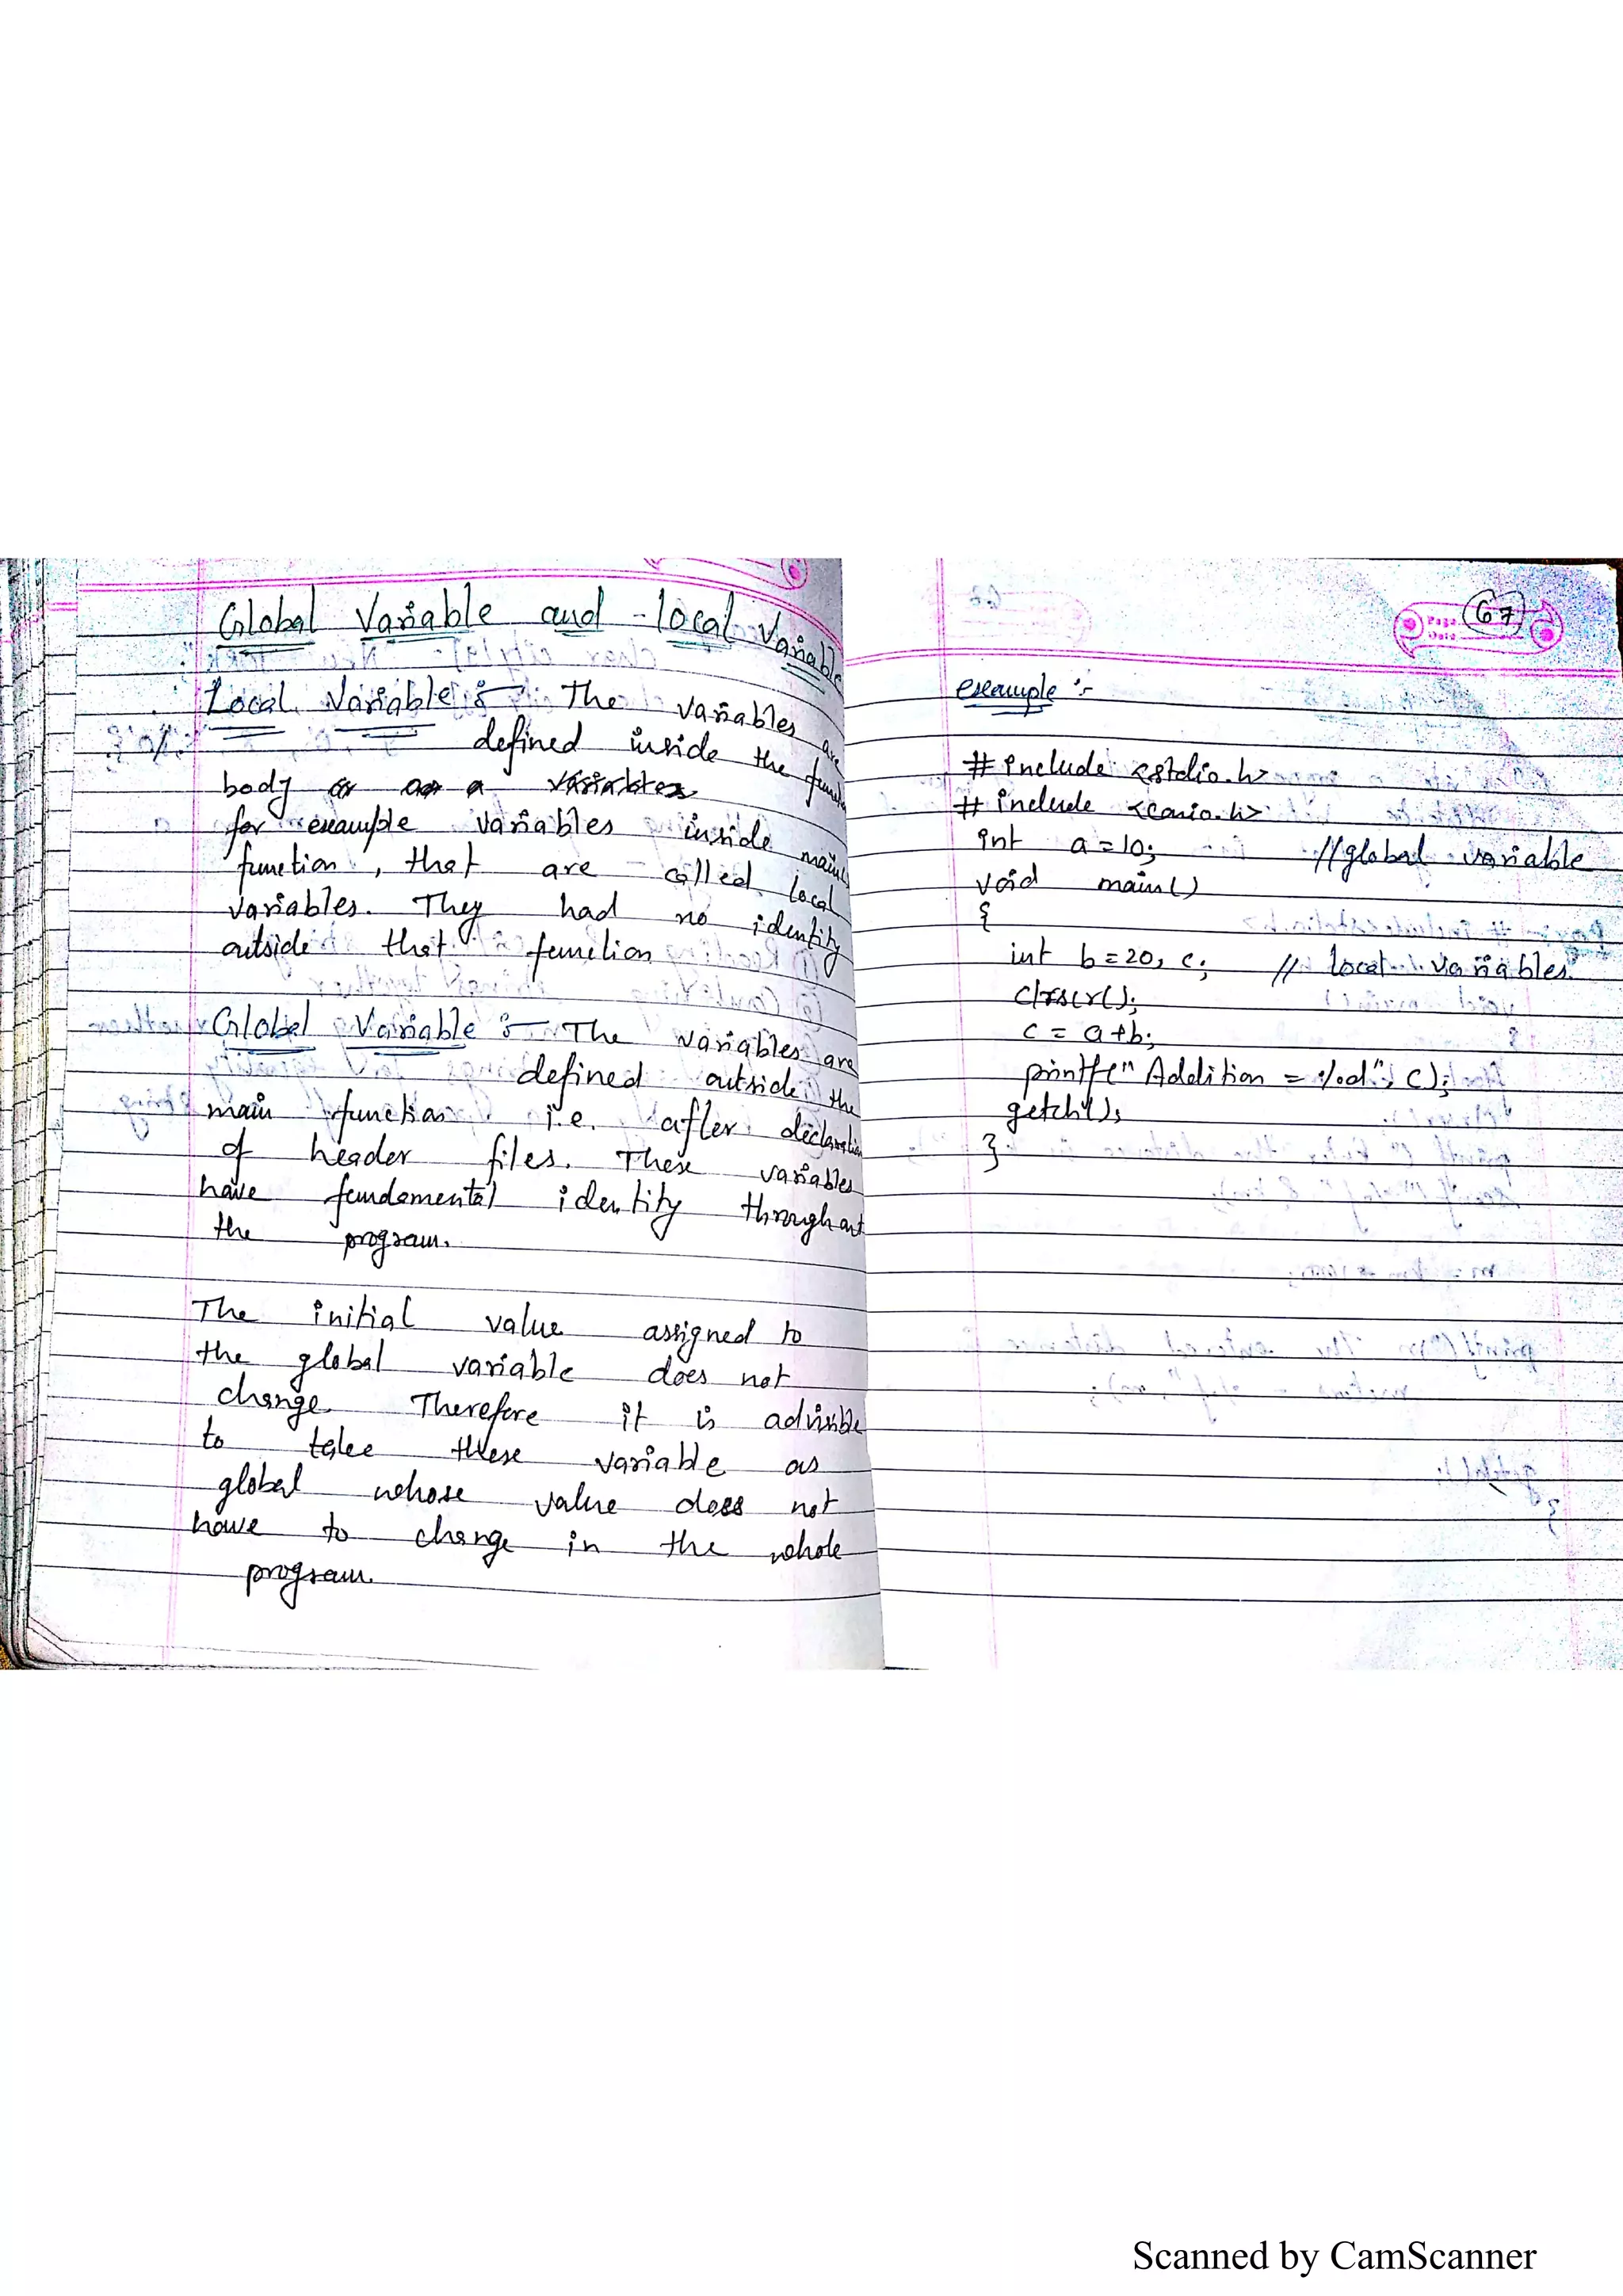 Global Variable and local Variable
Local Variable :- The variables are
defined inside the funct
body
for example variables inside main
function, that are called local
variables. They had no identity
outside that function
Global Variable :- The variables are
defined outside the
main function i.e. after declaration
of header files. These variables
have fundamental identity throughout
the program.
The initial value assigned to
the global variable does not
change. Therefore it is advisible
to take these variable as
global whose value does not
have to change in the whole
program.
67
Page
Date
example :-
# include <stdio.h>
# include <conio.h>
int a=10; //global variable
void main()
{
int b=20, c; // local variables
clrscr();
c = a+b;
printf(" Addition = %d", c);
getch();
}
Scanned by CamScanner